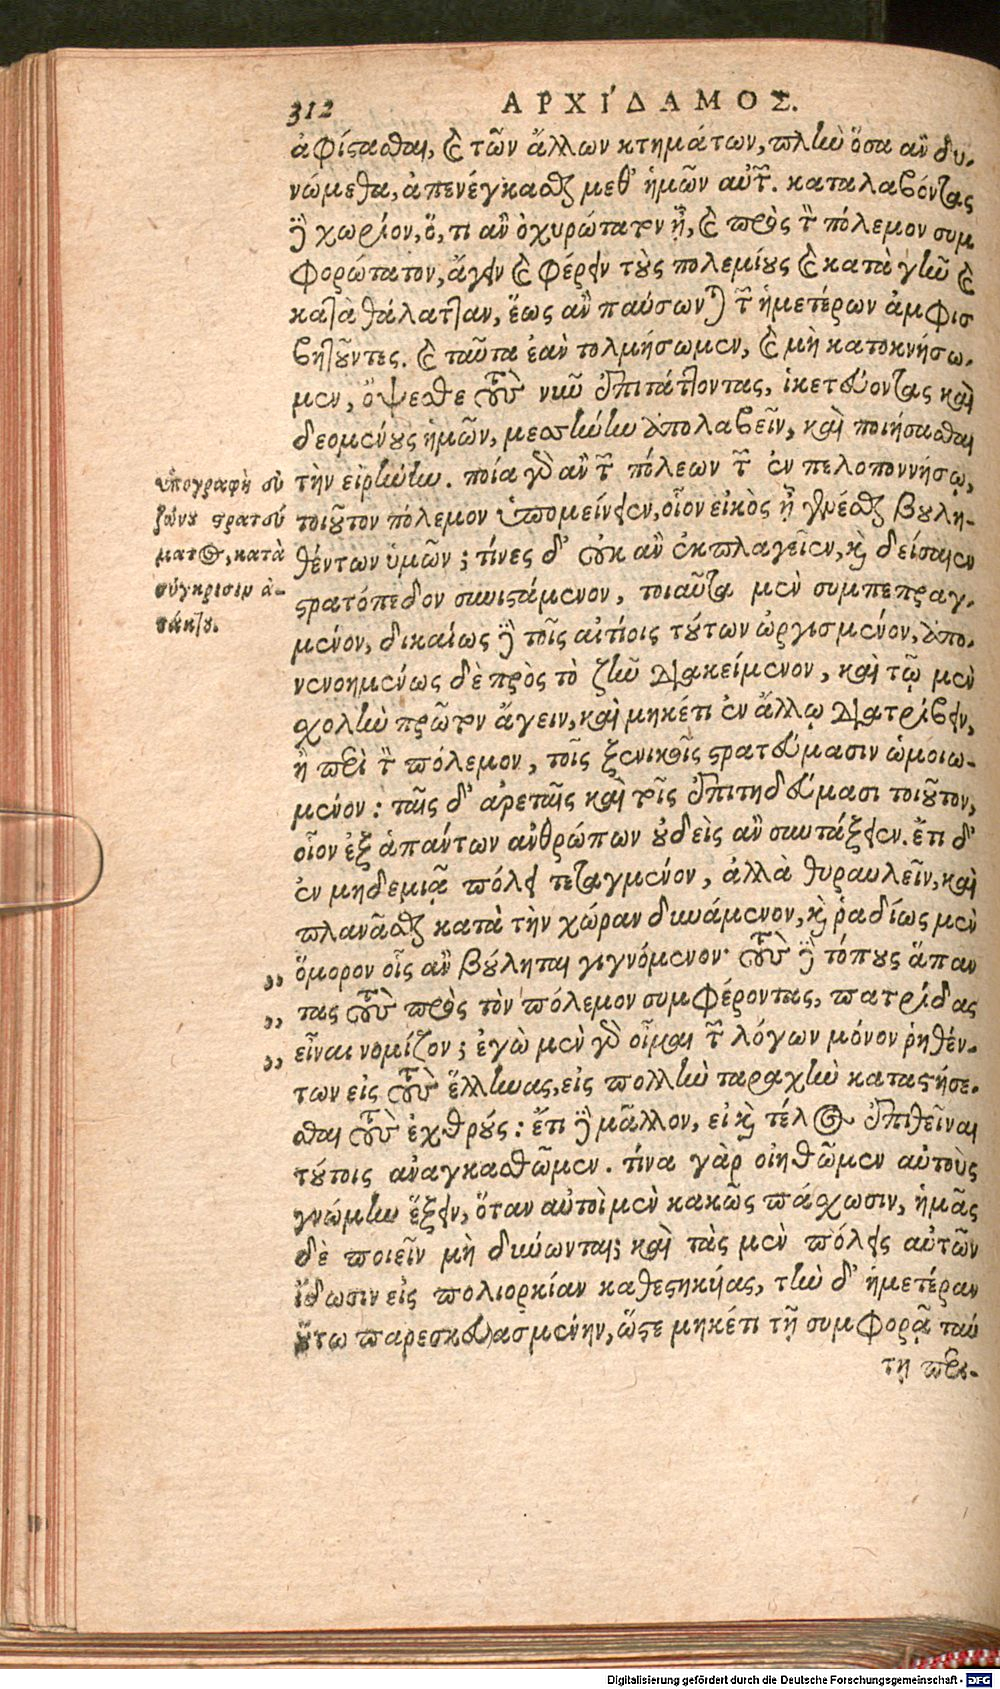 312
ΑΡΧΙΔΑΜΟΣ.
ἀφίστασθαι, καὶ τῶν ἄλλων κτημάτων, πλὴν ὅσα ἂν δυ-
νώμεθα, ἀπενέγκασθαι μεθ' ἡμῶν αὐτῶν. καταλαβόντας
δὲ χωρίον, ὅ, τι ἂν ὀχυρώτατον ᾖ, καὶ πρὸς τὸν πόλεμον συμ
φορώτατον, ἄγειν καὶ φέρειν τοὺς πολεμίους καὶ κατὰ γῆν καὶ
κατὰ θάλατταν, ἕως ἂν παύσωνται τῶν ἡμετέρων ἀμφισ
βητοῦντες. καὶ ταῦτα ἐὰν τολμήσωμεν, καὶ μὴ κατοκνήσω-
μεν, ὄψεσθε τοὺς νῦν ἐπιτάττοντας, ἱκετεύοντας καὶ
δεομένους ἡμῶν, μεσσήνην ἀπολαβεῖν, καὶ ποιήσασθαι
τὴν εἰρήνην. ποία γὰρ ἂν τῶν πόλεων τῶν ἐν πελοποννήσῳ,
τοιοῦτον πόλεμον ὑπομείνειεν, οἷον εἰκὸς ᾖ γενέσθαι βουλη-
θέντων ὑμῶν; τίνες δ' οὐκ ἂν ἐκπλαγεῖεν, καὶ δείσαιεν
στρατόπεδον συνιστάμενον, τοιαῦτα μὲν συμπεπραγ-
μένον, δικαίως δὲ τοῖς αἰτίοις τούτων ὠργισμένον, ἀπο-
νενοημένως δὲ πρὸς τὸ ζῆν διακείμενον, καὶ τῷ μὲν
σχολὴν πρῶτον ἄγειν, καὶ μηκέτι ἐν ἄλλῳ διατρίβειν,
ἢ περὶ τὸν πόλεμον, τοῖς ξενικοῖς στρατεύμασιν ὡμοιω-
μένον: ταῖς δ' ἀρεταῖς καὶ τοῖς ἐπιτηδεύμασι τοιοῦτον,
οἷον ἐξ ἁπάντων ἀνθρώπων οὐδεὶς ἂν συντάξειεν. ἔτι δ'
ἐν μηδεμιᾷ πόλει τεταγμένον, ἀλλὰ θυραυλεῖν, καὶ
πλανᾶσθαι κατὰ τὴν χώραν δυνάμενον, καὶ ῥαδίως μὲν
„ ὅμορον οἷς ἂν βούληται γιγνόμενον· τοὺς δὲ τόπους ἅπαν
„ τας τοὺς πρὸς τὸν πόλεμον συμφέροντας, πατρίδας
„ εἶναι νομίζον; ἐγὼ μὲν γὰρ οἶμαι τῶν λόγων μόνον ῥηθέν-
των εἰς τοὺς ἕλληνας, εἰς πολλὴν ταραχὴν καταστήσε-
σθαι τοὺς ἐχθρούς: ἔτι δὲ μᾶλλον, εἰ καὶ τέλος ἐπιθεῖναι
τούτοις ἀναγκασθῶμεν. τίνα γὰρ οἰηθῶμεν αὐτοὺς
γνώμην ἕξειν, ὅταν αὐτοὶ μὲν κακῶς πάσχωσιν, ἡμᾶς
δὲ ποιεῖν μὴ δύνωνται; καὶ τὰς μὲν πόλεις αὐτῶν
ἴδωσιν εἰς πολιορκίαν καθεστηκυίας, τὴν δ' ἡμετέραν
οὕτω παρεσκευασμένην, ὥστε μηκέτι τῇ συμφορᾷ ταύ
τῃ περι-
ὑπογραφὴ συ
ζώνου στρατεύ
ματος, κατὰ
σύγκρισιν ἀ-
τάκτου.
Digitalisierung gefördert durch die Deutsche Forschungsgemeinschaft - DFG